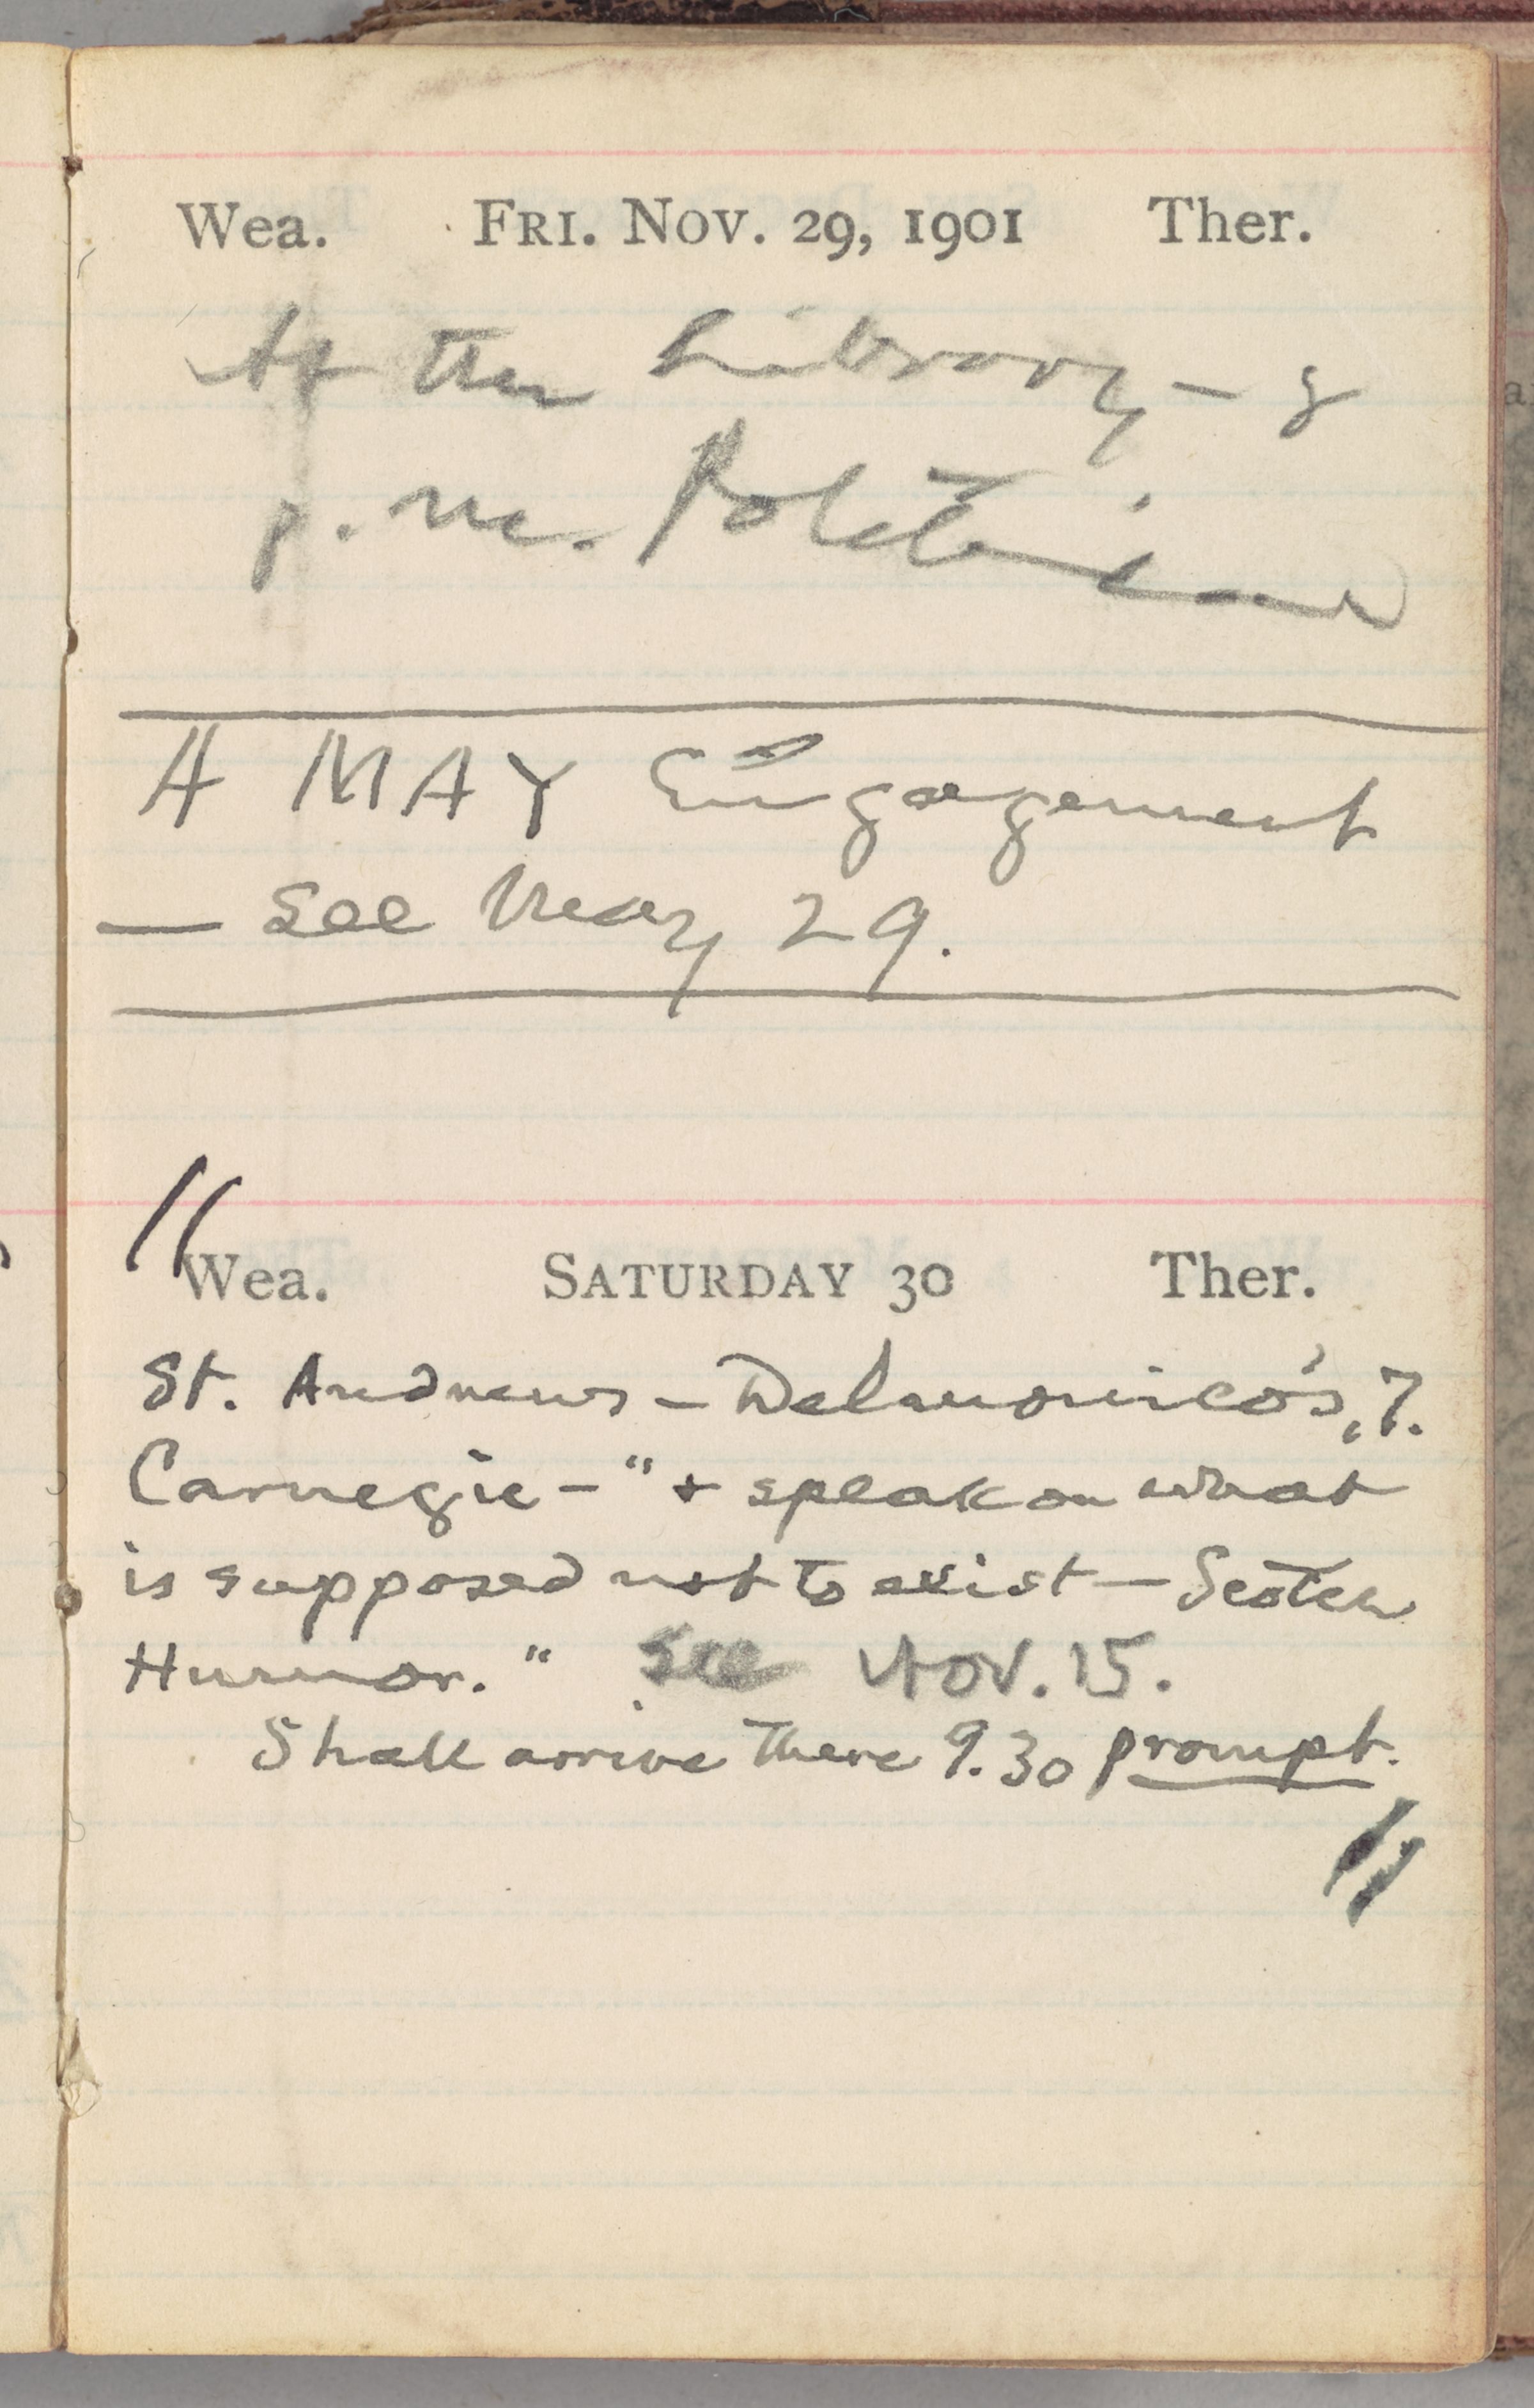 Wea. FRI. NOV. 29, 1901 Ther.
At the Library – 8
p. m. Politician
A MAY Engagement
— See May 29.
Wea. SATURDAY 30 Ther.
St. Andrews – Delmonico's, 7.
Carnegie – "& speak on what
is supposed not to exist — Scotch
Humor." See NOV. 15.
Shall arrive there 9.30 prompt.